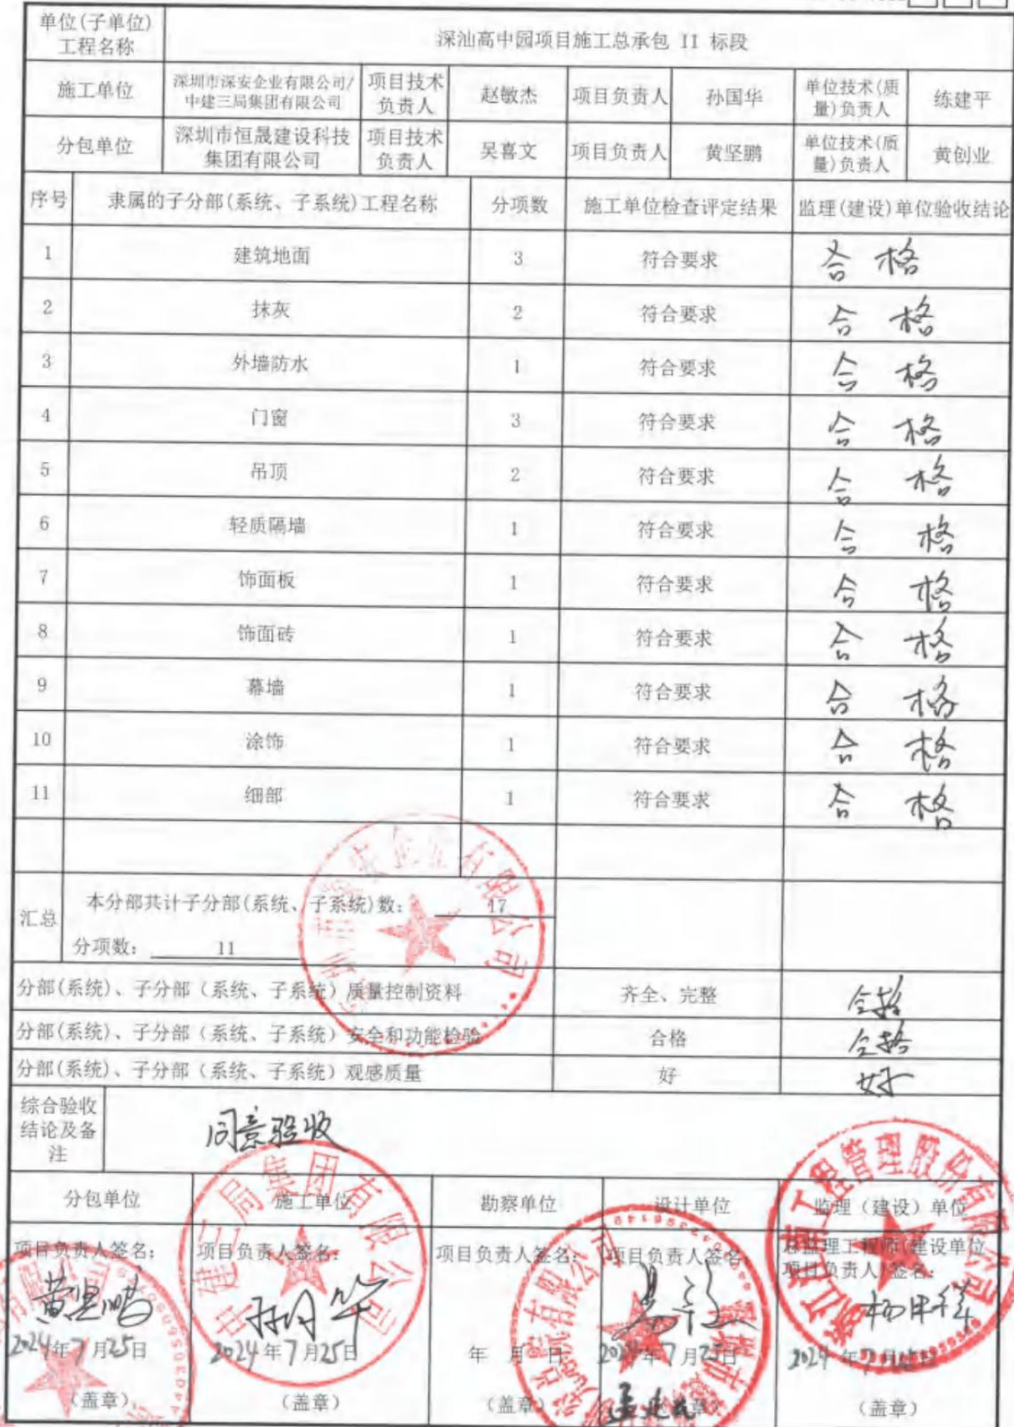 单位(子单位)
工程名称
深汕高中园项目施工总承包 II 标段
施工单位
深圳市深安企业有限公司/
中建三局集团有限公司
项目技术
负责人
赵敏杰
项目负责人
孙国华
单位技术(质
量)负责人
练建平
分包单位
深圳市恒晟建设科技
集团有限公司
项目技术
负责人
吴喜文
项目负责人
黄坚鹏
单位技术(质
量)负责人
黄创业
序号 隶属的子分部(系统、子系统)工程名称 分项数 施工单位检查评定结果 监理(建设)单位验收结论
1 建筑地面 3 符合要求 合格
2 抹灰 2 符合要求 合格
3 外墙防水 1 符合要求 合格
4 门窗 3 符合要求 合格
5 吊顶 2 符合要求 合格
6 轻质隔墙 1 符合要求 合格
7 饰面板 1 符合要求 合格
8 饰面砖 1 符合要求 合格
9 幕墙 1 符合要求 合格
10 涂饰 1 符合要求 合格
11 细部 1 符合要求 合格
汇总
本分部共计子分部(系统、子系统)数: 17
分项数: 11
分部(系统)、子分部（系统、子系统）质量控制资料 齐全、完整 合格
分部(系统)、子分部（系统、子系统）安全和功能检验 合格 合格
分部(系统)、子分部（系统、子系统）观感质量 好 好
综合验收
结论及备
注
同意验收
分包单位 施工单位 勘察单位 设计单位 监理（建设）单位
项目负责人签名: 项目负责人签名: 项目负责人签名: 项目负责人签名: 总监理工程师(建设单位
项目负责人)签名:
黄坚鹏
2024年7月25日 2024年7月25日 年 月 日 2024年7月25日 2024年7月 日
(盖章) (盖章) (盖章) (盖章)
中建三局集团有限公司